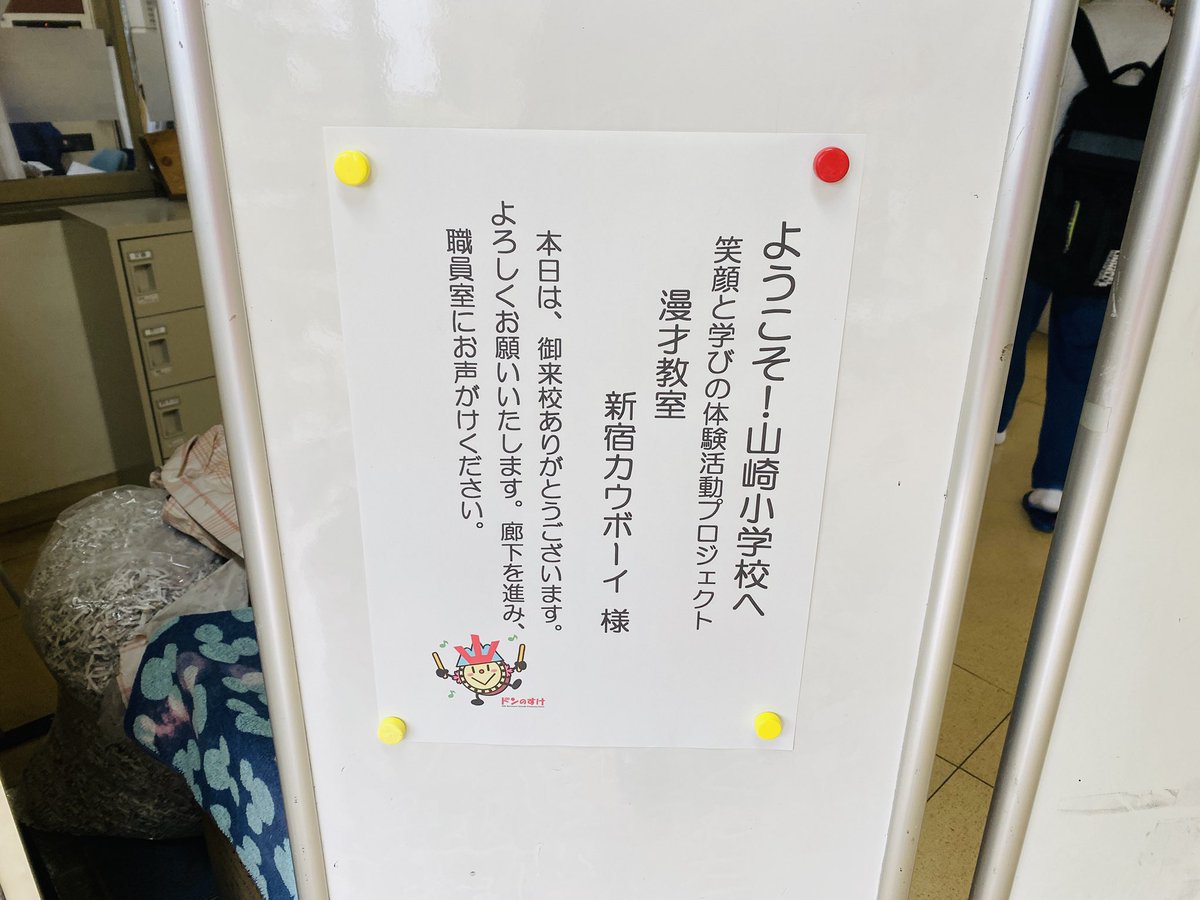 ようこそ！山崎小学校へ
笑顔と学びの体験活動プロジェクト
漫才教室
新宿カウボーイ 様
本日は、御来校ありがとうございます。
よろしくお願いいたします。廊下を進み、
職員室にお声がけください。
山
ドンのすけ